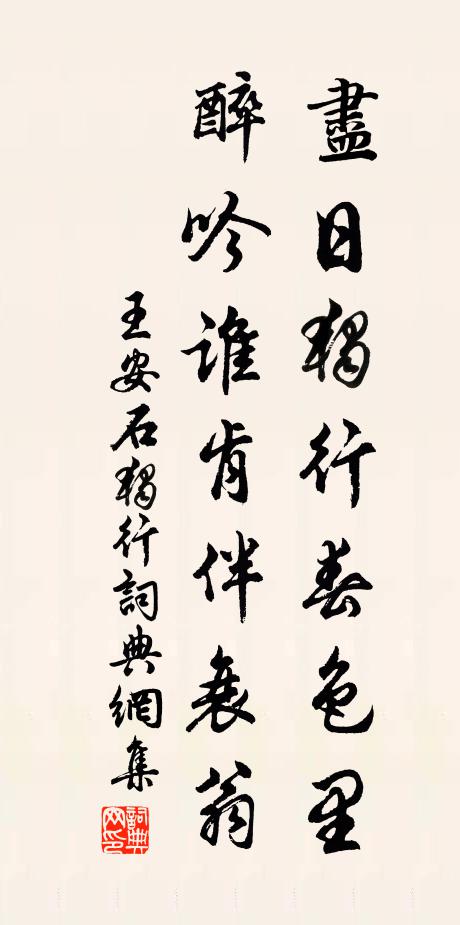 盡日獨行春色里
醉吟誰肯伴衰翁
王安石獨行詞典網集
詞典網印